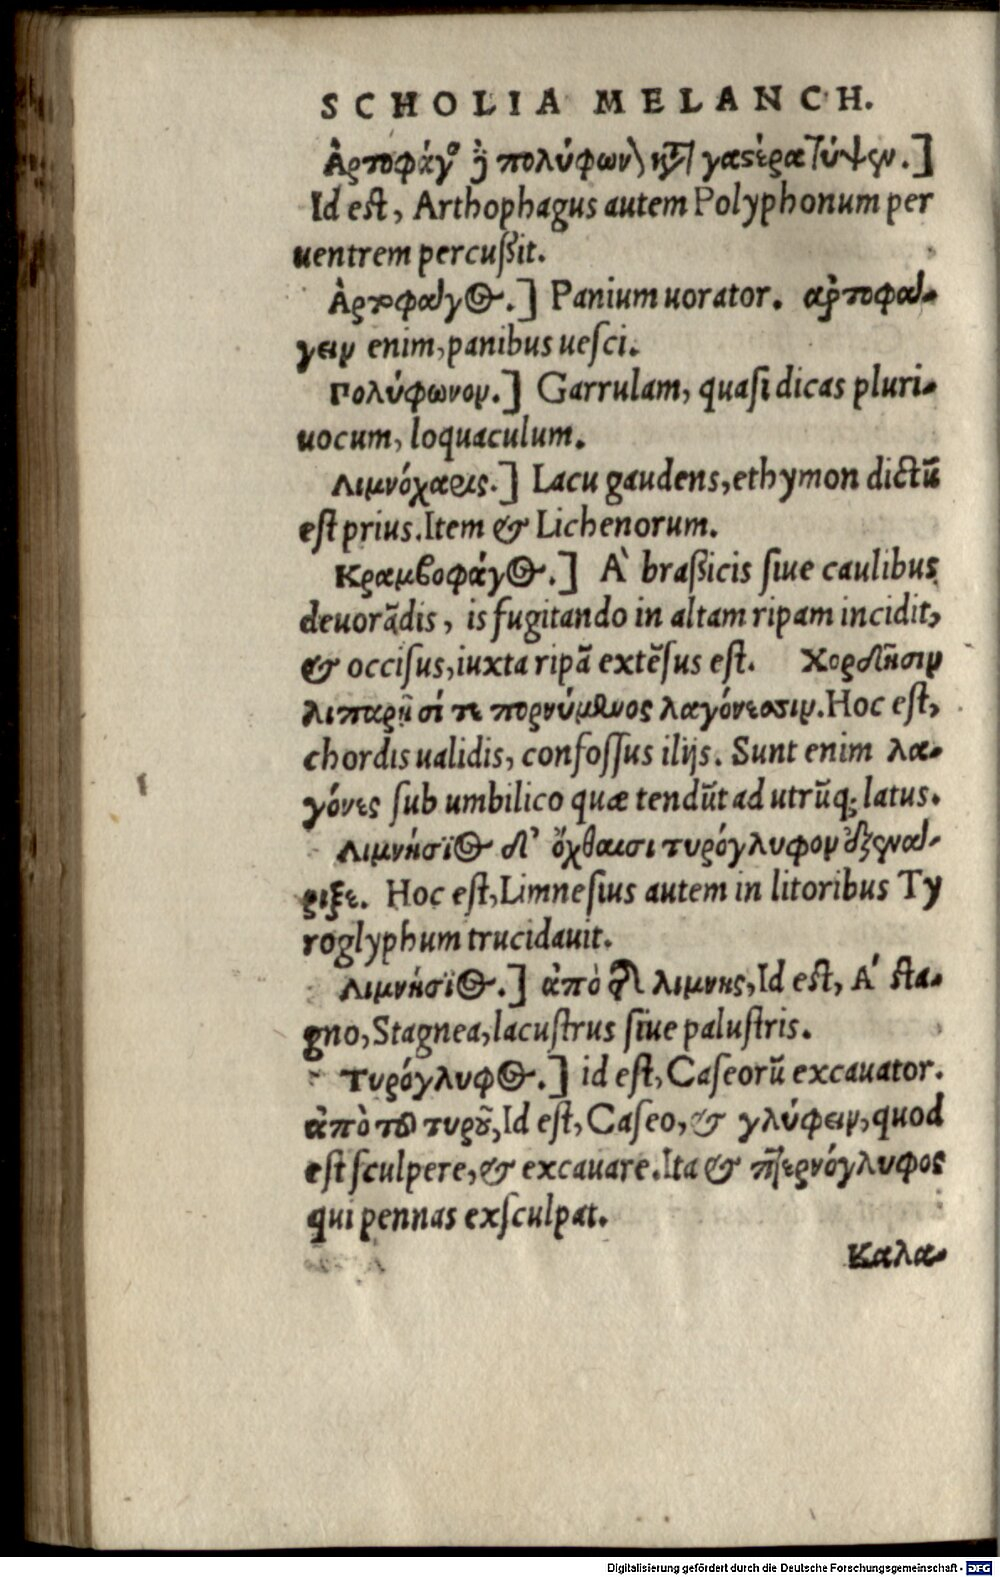 SCHOLIA MELANCH.
Ἀρτοφάγος δὲ πολύφωνον κατὰ γαστέρα τύψεν.]
Id est, Arthophagus autem Polyphonum per
uentrem percußit.
Ἀρτοφάγος.] Panium uorator. αρτοφά-
γειν enim, panibus uesci.
Πολύφωνον.] Garrulam, quasi dicas pluri-
uocum, loquaculum.
Λιμνόχαρις.] Lacu gaudens, ethymon dictū
est prius. Item & Lichenorum.
Κραμβοφάγος.] À braßicis siue caulibus
deuorādis, is fugitando in altam ripam incidit,
& occisus, iuxta ripā extēsus est. Χορδῆσιν
λιπαρῆσί τε πορνύμενος λαγόνεσσιν. Hoc est,
chordis ualidis, confossus ilijs. Sunt enim λα-
γόνες sub umbilico quæ tendūt ad utrūq; latus.
Λιμνήσιος δ' ὄχθαισι τυρόγλυφον ἐξενά-
ριξε. Hoc est, Limnesius autem in litoribus Ty
roglyphum trucidauit.
Λιμνήσιος.] ἀπὸ τῆς λιμνης, Id est, A' sta-
gno, Stagnea, lacustrus siue palustris.
Τυρόγλυφος.] id est, Caseorū excauator.
ἀπὸ τοῦ τυροῦ, Id est, Caseo, & γλύφειν, quod
est sculpere, & excauare. Ita & πτερνόγλυφος
qui pennas exsculpat.
Καλα-
Digitalisierung gefördert durch die Deutsche Forschungsgemeinschaft - DFG